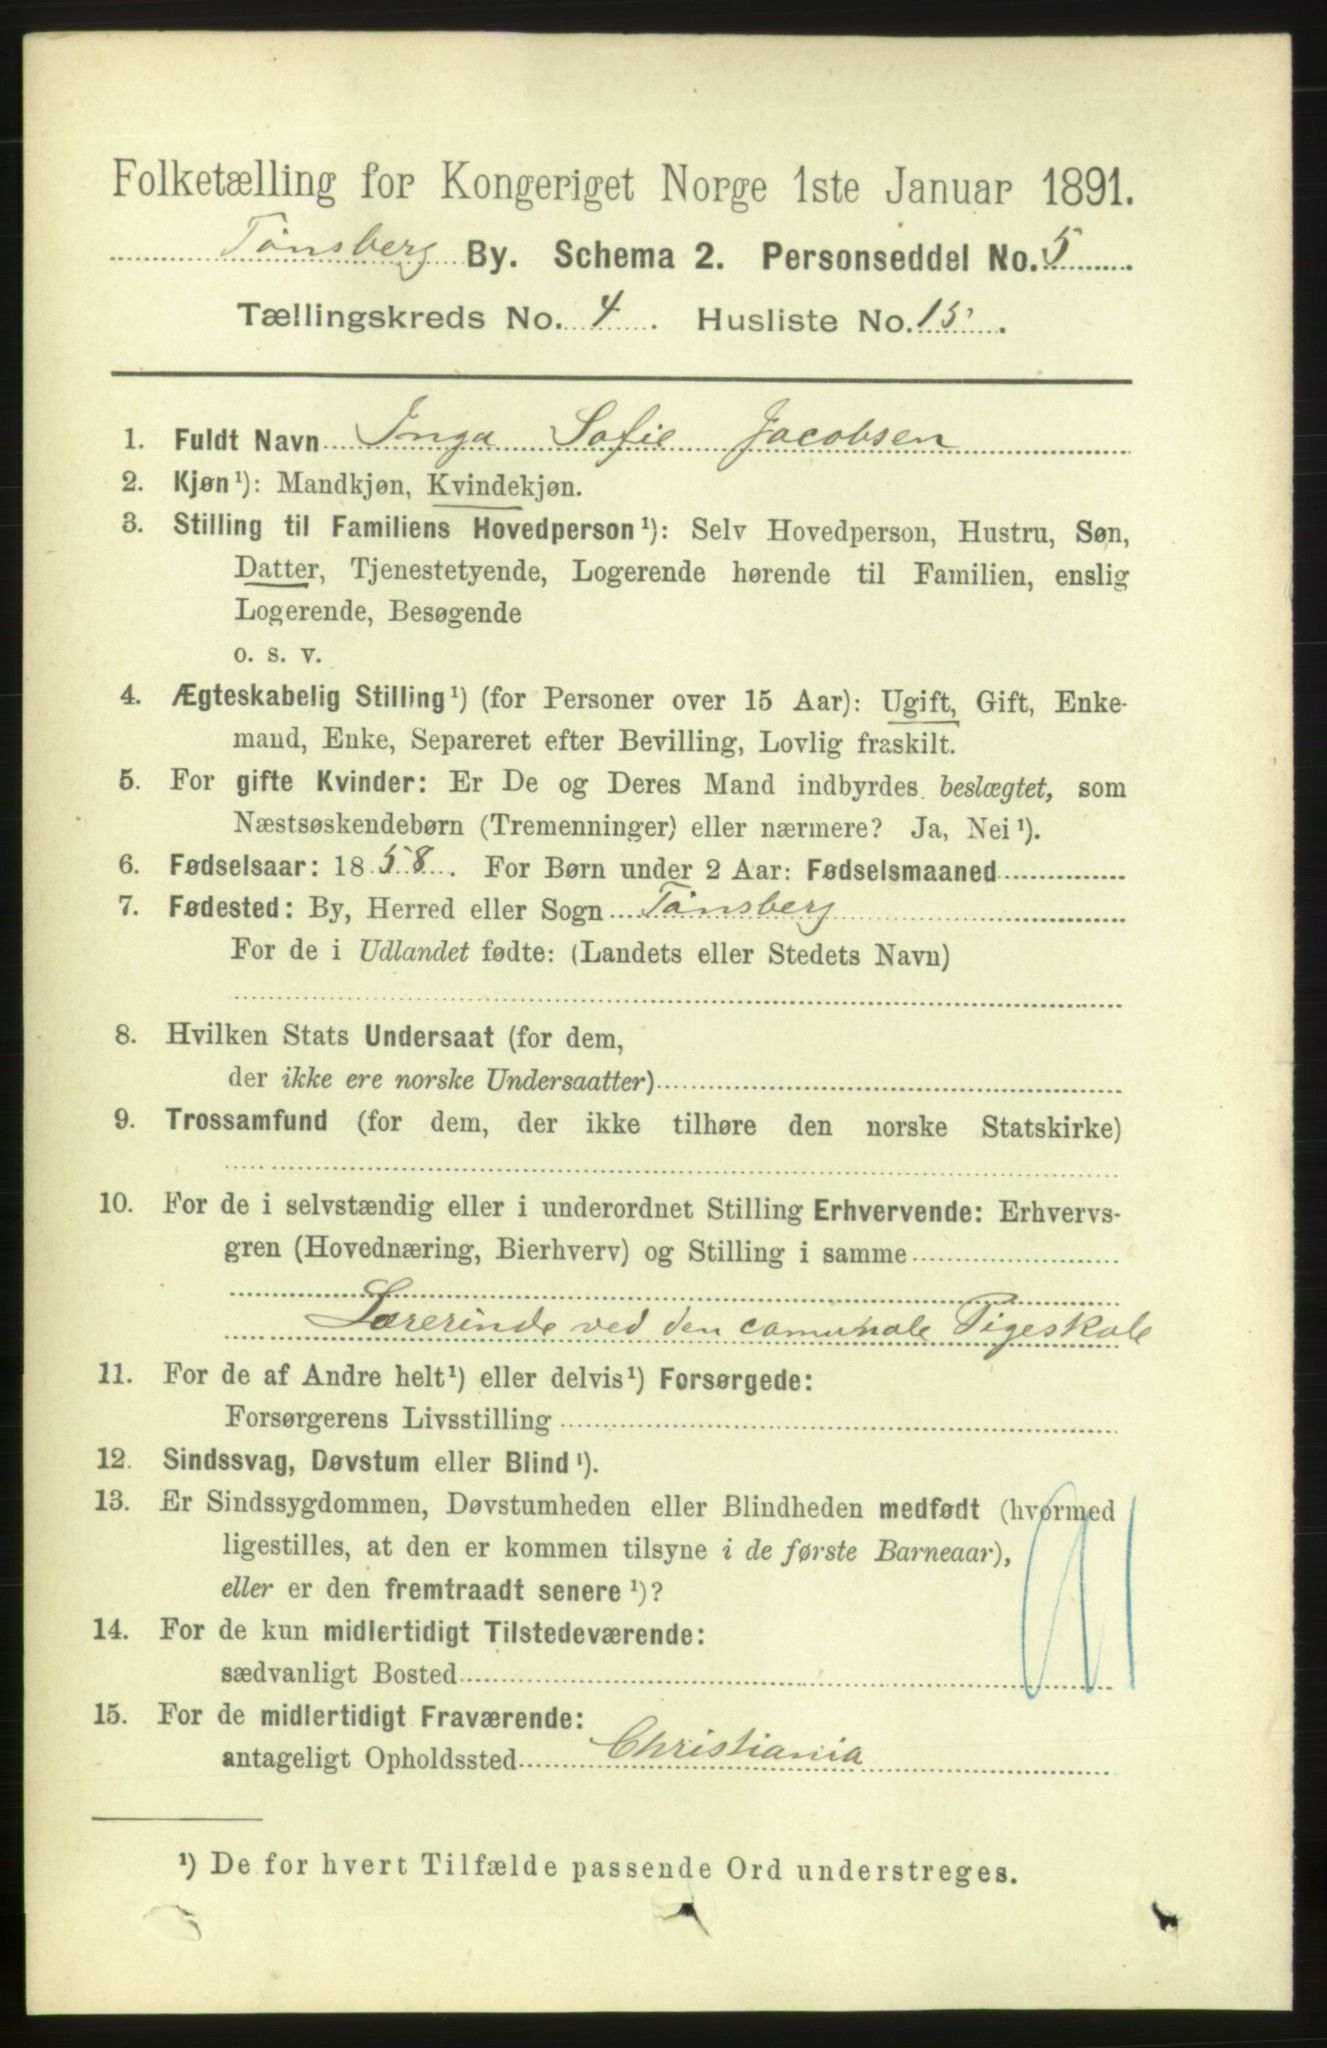 Folketælling for Kongeriget Norge 1ste Januar 1891.
Tønsberg By. Schema 2. Personseddel No. 5
Tællingskreds No. 4. Husliste No. 15.
1. Fuldt Navn Inga Sofie Jacobsen
2. Kjøn¹): Mandkjøn, Kvindekjøn.
3. Stilling til Familiens Hovedperson¹): Selv Hovedperson, Hustru, Søn,
Datter, Tjenestetyende, Logerende hørende til Familien, enslig
Logerende, Besøgende
o. s. v.
4. Ægteskabelig Stilling¹) (for Personer over 15 Aar): Ugift, Gift, Enke-
mand, Enke, Separeret efter Bevilling, Lovlig fraskilt.
5. For gifte Kvinder: Er De og Deres Mand indbyrdes beslægtet, som
Næstsøskendebørn (Tremenninger) eller nærmere? Ja, Nei¹).
6. Fødselsaar: 1858. For Børn under 2 Aar: Fødselsmaaned
7. Fødested: By, Herred eller Sogn Tønsberg
For de i Udlandet fødte: (Landets eller Stedets Navn)
8. Hvilken Stats Undersaat (for dem,
der ikke ere norske Undersaatter)
9. Trossamfund (for dem, der ikke tilhøre den norske Statskirke)
10. For de i selvstændig eller i underordnet Stilling Erhvervende: Erhvervs-
gren (Hovednæring, Bierhverv) og Stilling i samme
Lærerinde ved den comunale Pigeskole
11. For de af Andre helt¹) eller delvis¹) Forsørgede:
Forsørgerens Livsstilling
12. Sindssvag, Døvstum eller Blind¹).
13. Er Sindssygdommen, Døvstumheden eller Blindheden medfødt (hvormed
ligestilles, at den er kommen tilsyne i de første Barneaar),
eller er den fremtraadt senere¹)?
14. For de kun midlertidigt Tilstedeværende:
sædvanligt Bosted
15. For de midlertidigt Fraværende:
antageligt Opholdssted Christiania
¹) De for hvert Tilfælde passende Ord understreges.